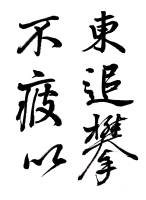 東追攀
不疲以